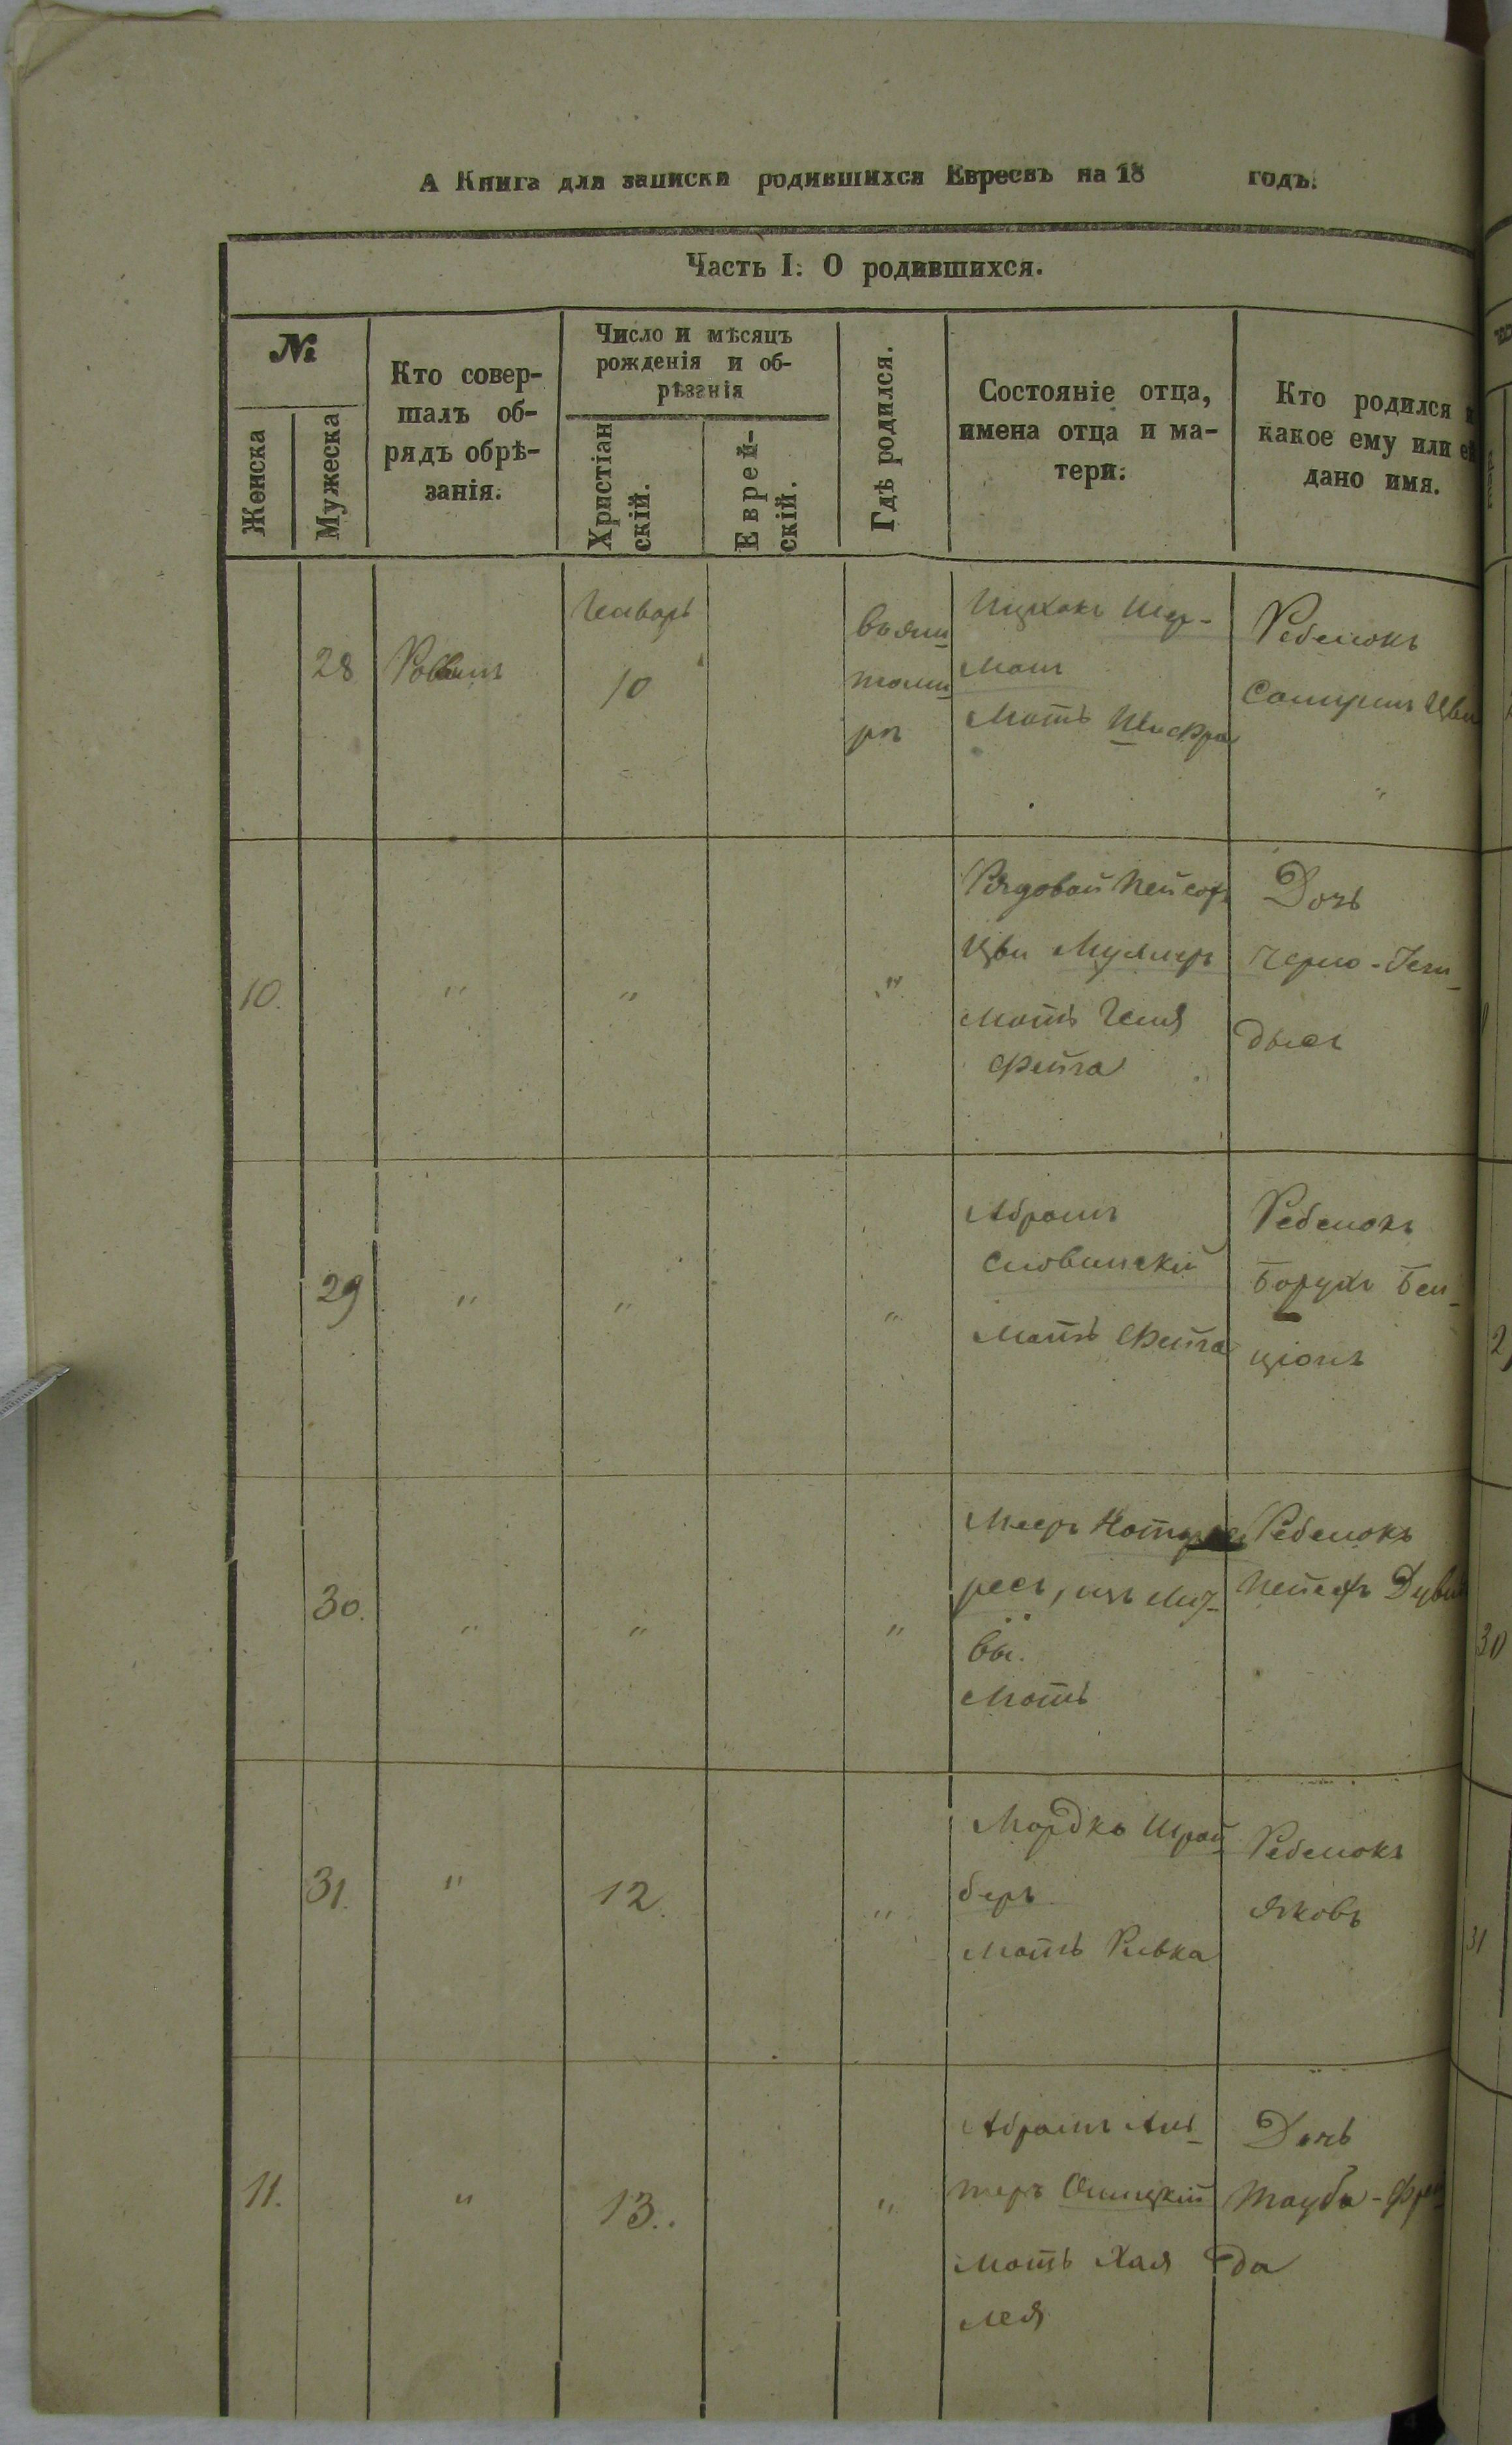 А Книга для записки родившихся Евреевъ на 18 годъ.
Часть I: О родившихся.
№
Женска
Мужеска
Кто совер-
шалъ об-
рядъ обрѣ-
занія.
Число и мѣсяцъ
рожденія и об-
рѣзанія
Христіан
скій.
Еврей-
скій.
Гдѣ родился.
Состояніе отца,
имена отца и ма-
тери.
Кто родился и
какое ему или ей
дано имя.
28
Январь
10
Мать
Ребенокъ
Цви
10.
"
"
"
Рядовой Пейсахъ
Цви
Мать Геня
Фейга
Дочь
Черно-Ген
дысъ
29
"
"
"
Абрамъ
Словинскій
Мать Фейга
Ребенокъ
Борухъ Бен
ціонъ
30.
"
"
"
Мееръ
ресъ, изъ
вы.
Мать
Ребенокъ
Пейсахъ
31.
"
12.
"
Мордко Шрай
беръ
Мать Ривка
Ребенокъ
Яковъ
11.
"
13.
"
Абрамъ Аль
теръ
Мать Хая
Лея
Дочь
Тауба-Фрей
да
2
30
31